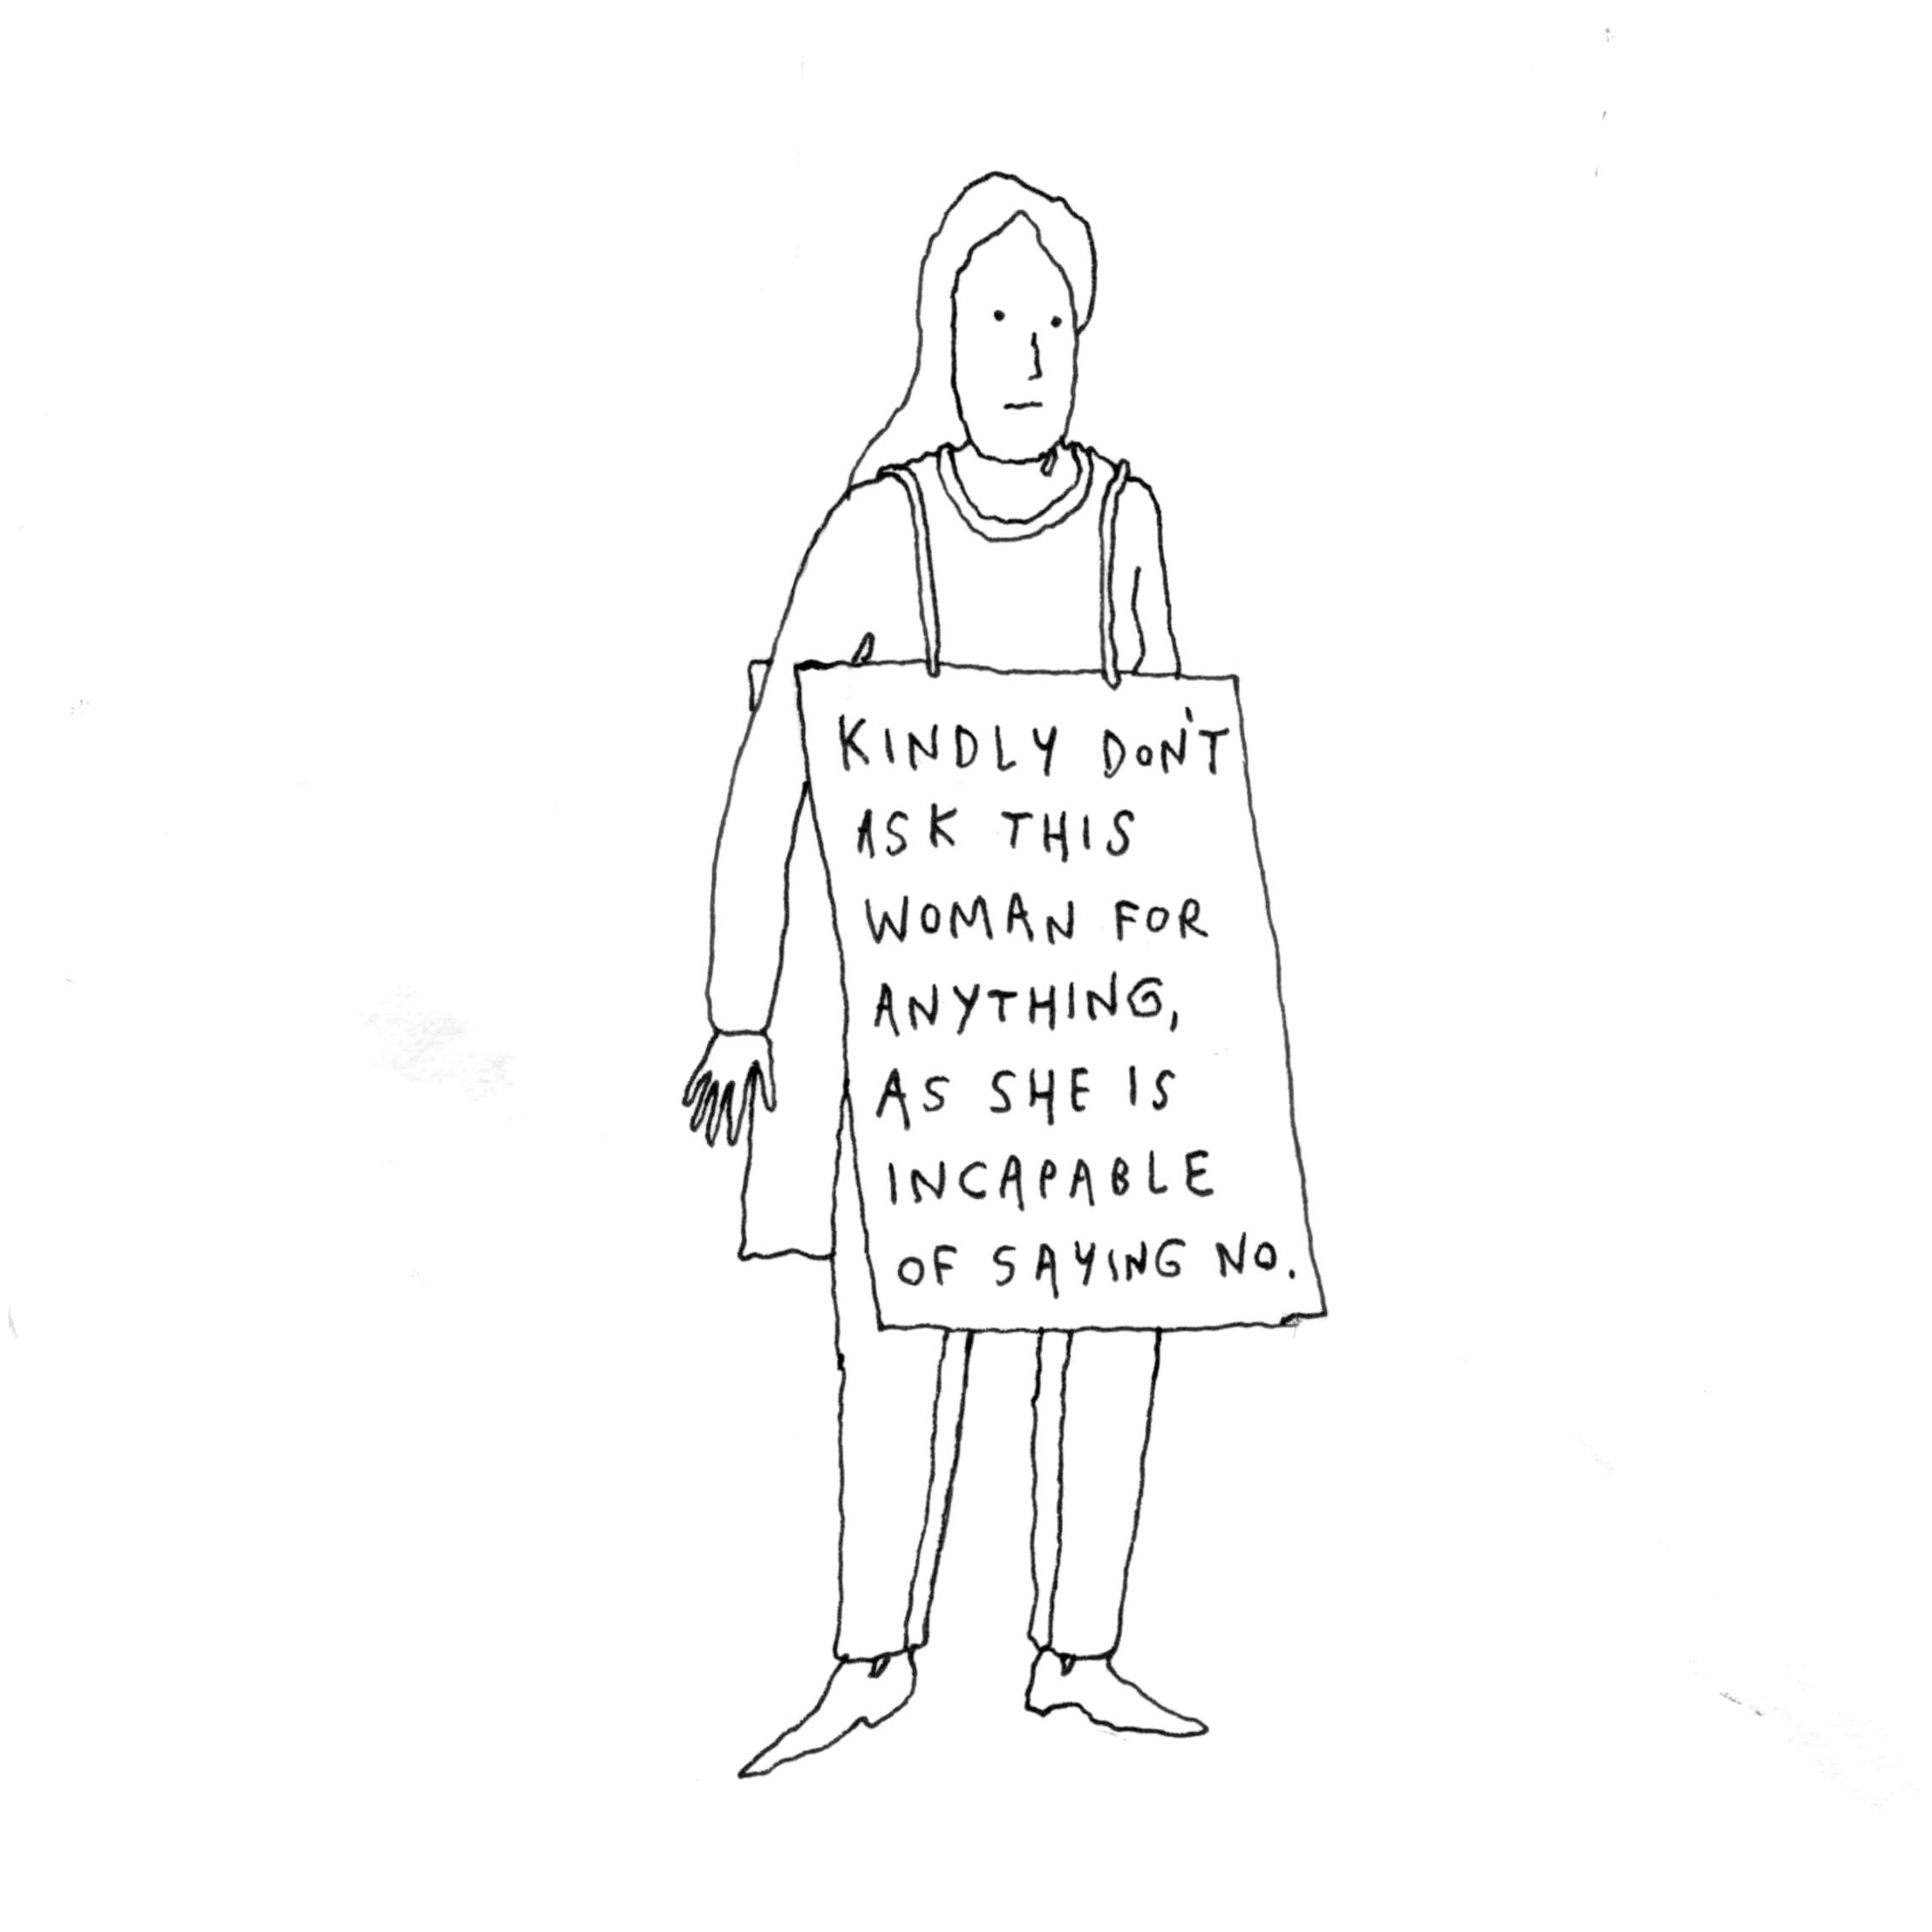 KINDLY DON'T
ASK THIS
WOMAN FOR
ANYTHING,
AS SHE IS
INCAPABLE
OF SAYING NO.